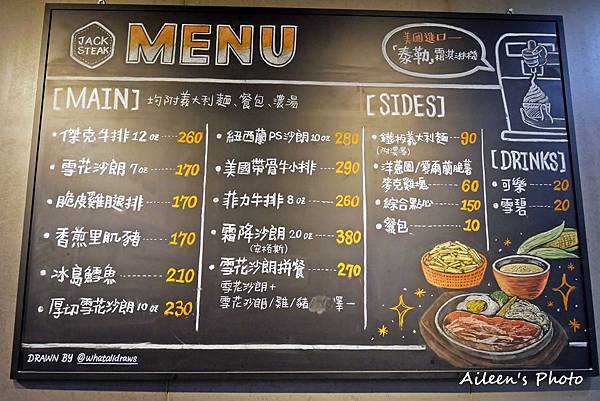 JACK
STEAK
MENU
美國進口一
「泰勒」霜淇淋機
[MAIN] 均附義大利麵、餐包、濃湯
• 傑克牛排 12oz 260
• 雪花沙朗 7oz 170
• 脆皮雞腿排 170
• 香煎里肌豬 170
• 冰島鱈魚 210
• 厚切雪花沙朗 10oz 230
• 紐西蘭PS沙朗 10oz 280
• 美國帶骨牛小排 290
• 菲力牛排 8oz 260
• 霜降沙朗 20oz 380
(安格斯)
• 雪花沙朗拼餐 270
雪花沙朗+
雪花沙朗/雞/豬 擇一
[SIDES]
• 鐵板義大利麵 90
(附濃湯)
• 洋蔥圈/愛爾蘭脆薯
麥克雞塊 60
• 綜合點心 150
• 餐包 10
[DRINKS]
• 可樂 20
• 雪碧 20
DRAWN BY @whatalidraws
Aileen's Photo